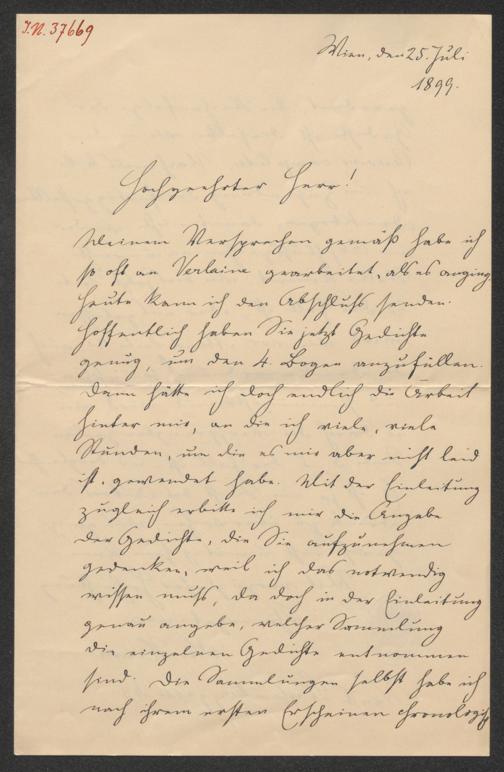 I.N. 37669
Wien, den 25. Juli
1899.
Hochgeehrter Herr!
Meinem Versprechen gemäß habe ich
so oft an Verlaine gearbeitet, als es anging.
Heute kann ich den Abschluß senden.
Hoffentlich haben Sie jetzt Gedichte
genug, um den 4. Bogen anzufüllen.
Dann hätte ich doch endlich die Arbeit
hinter mir, an die ich viele, viele
Stunden, um die es mir aber nicht leid
ist, gewendet habe. Mit der Einleitung
zugleich erbitte ich mir die Angabe
der Gedichte, die Sie aufzunehmen
gedenken, weil ich das notwendig
wissen muß, da doch in der Einleitung
genau angebe, welcher Sammlung
die einzelnen Gedichte entnommen
sind. Die Sammlungen selbst habe ich
nach ihrem ersten Erscheinen chronologisch